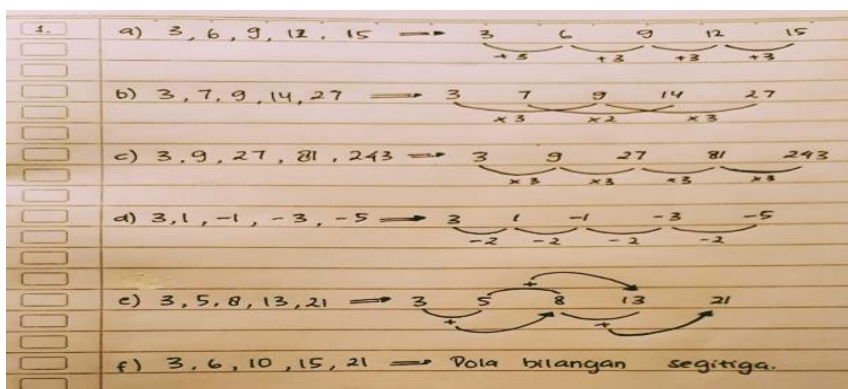 1. a) 3, 6, 9, 12, 15 → 3 6 9 12 15
+3 +3 +3 +3
b) 3, 7, 9, 14, 27 → 3 7 9 14 27
×3 ×2 ×3
c) 3, 9, 27, 81, 243 → 3 9 27 81 243
×3 ×3 ×3 ×3
d) 3, 1, -1, -3, -5 → 3 1 -1 -3 -5
-2 -2 -2 -2
+
e) 3, 5, 8, 13, 21 → 3 5 8 13 21
+ +
f) 3, 6, 10, 15, 21 → Pola bilangan segitiga.